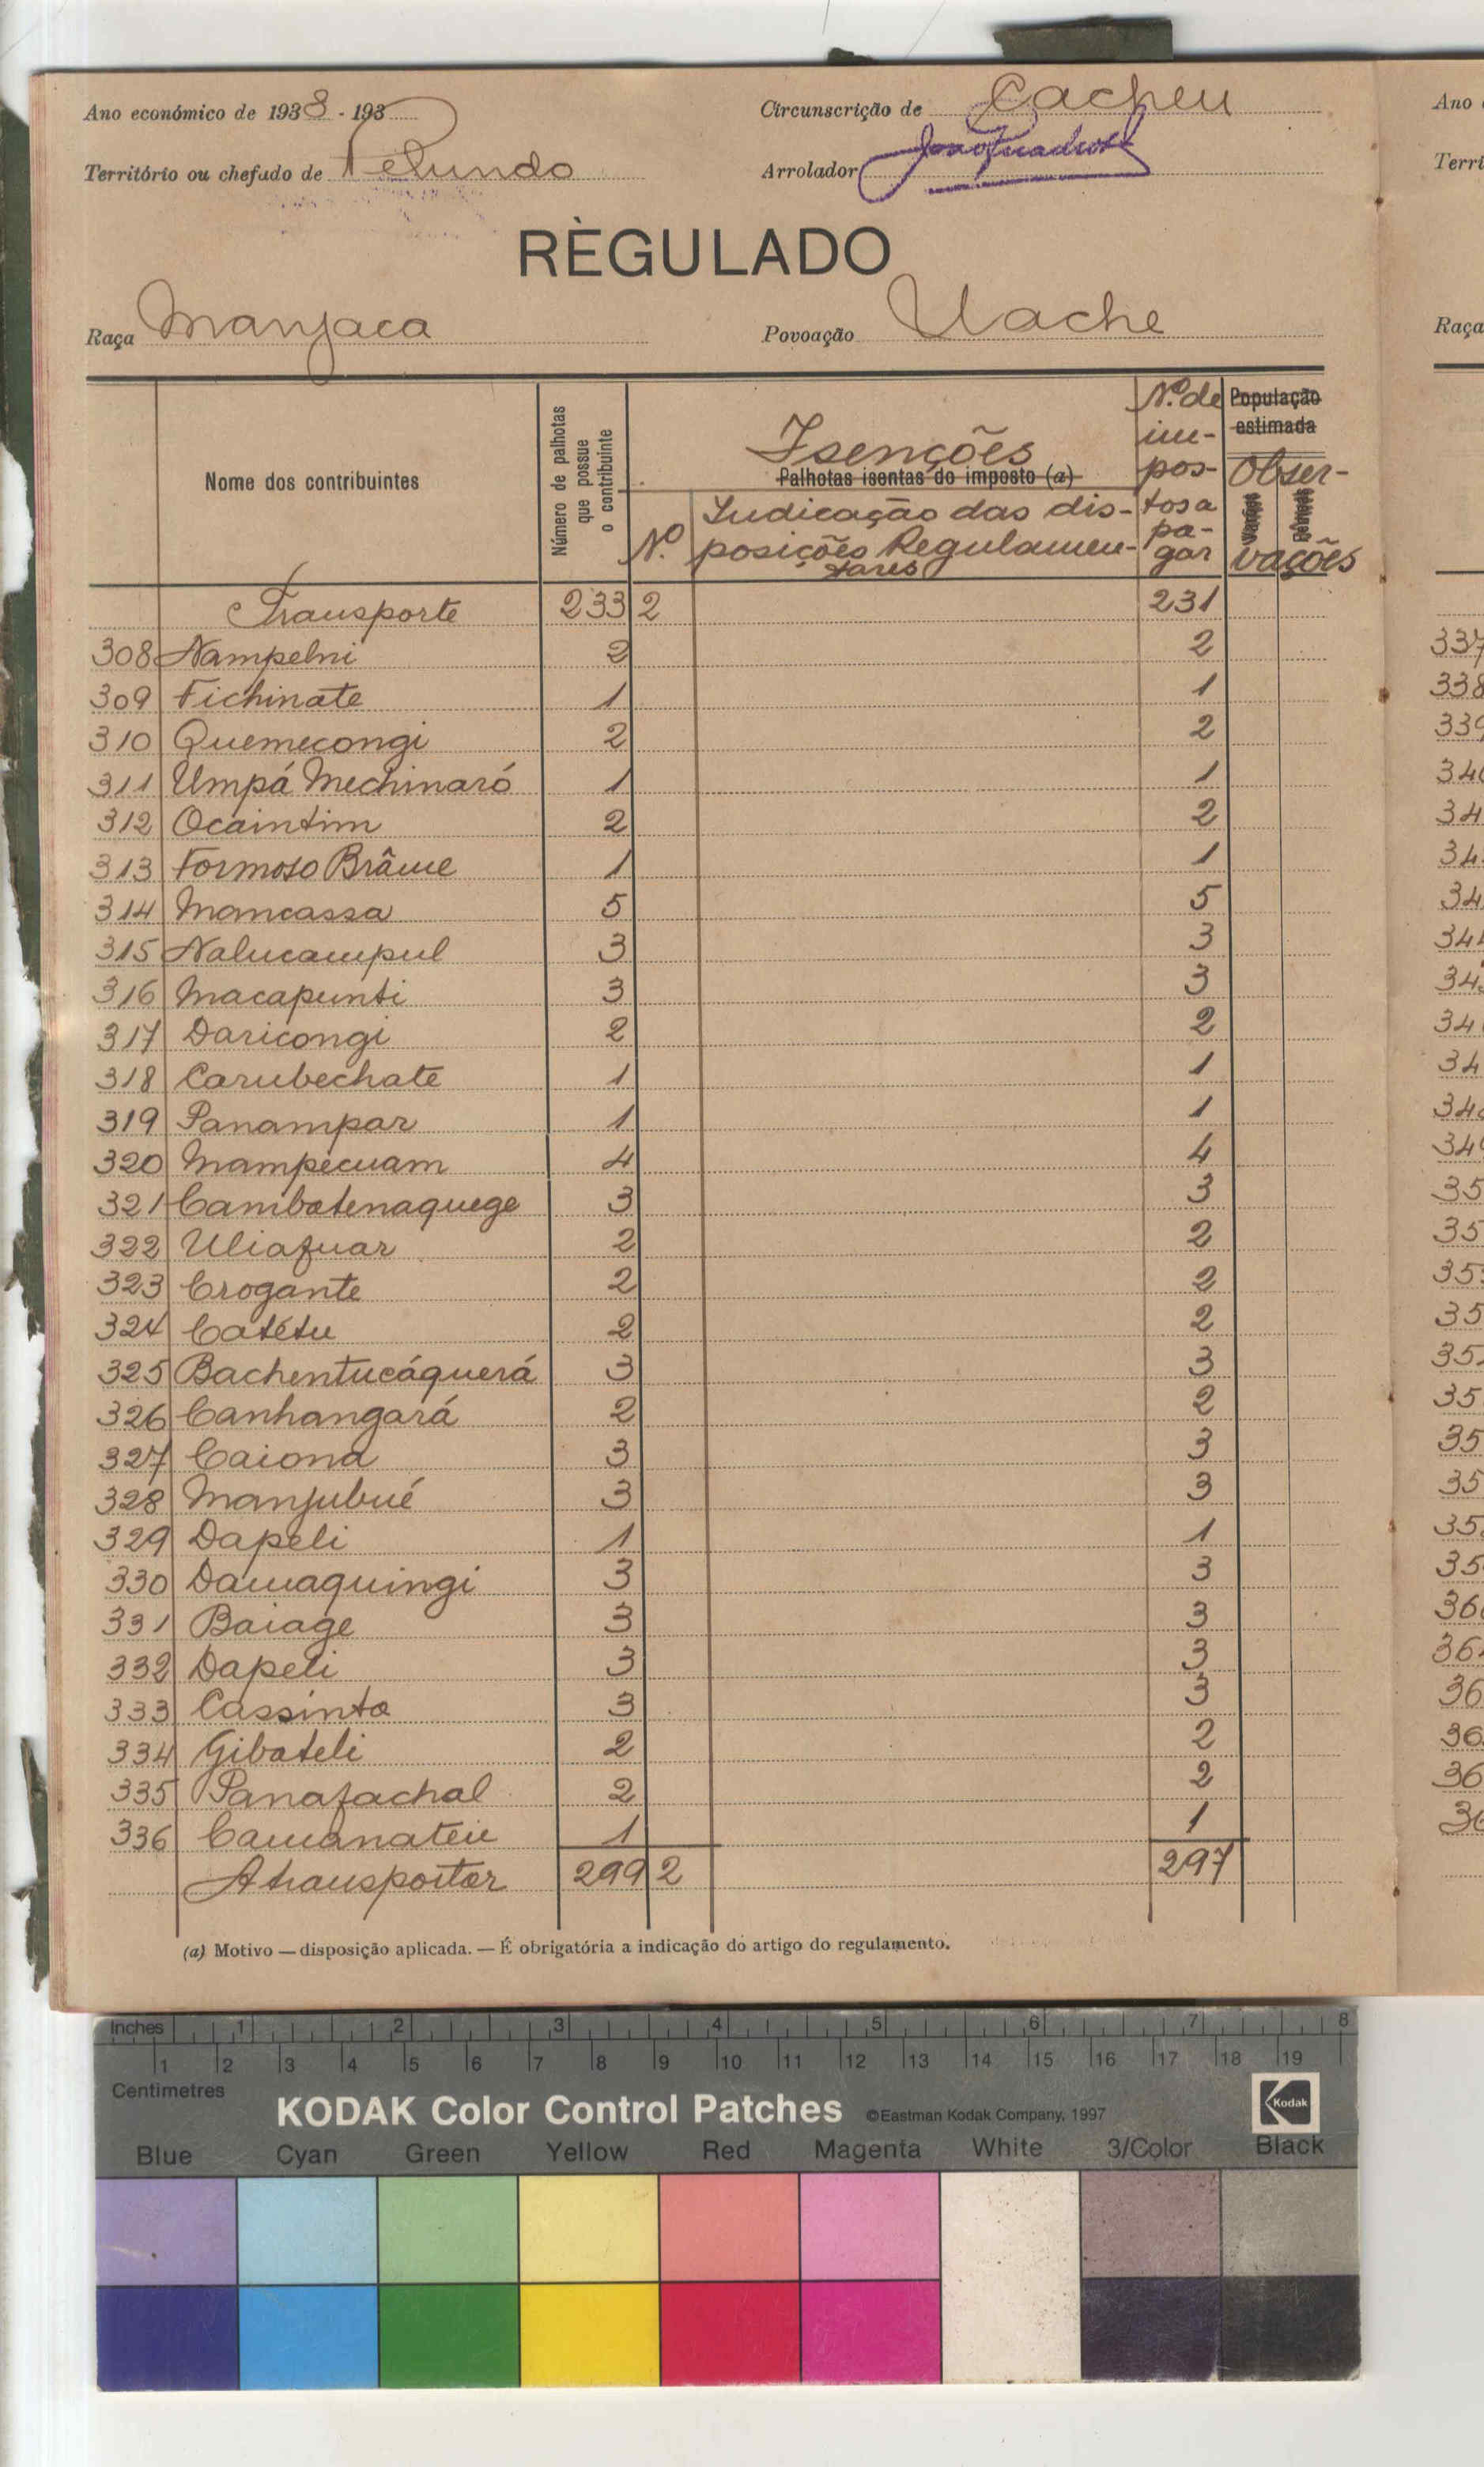 Ano económico de 1938 - 193
Circunscrição de Cacheu
Território ou chefado de Pelundo
Arrolador
RÈGULADO
Raça Manjaca
Povoação Uache
Nome dos contribuintes
Número de palhotas que possue o contribuinte
Isenções
Palhotas isentas do imposto (a)
N.º
Indicação das disposições Regulamentares
N.º de impostos a pagar
População estimada
Observações
Transporte 233 2 231
308 Nampelni 2 2
309 Fichinate 1 1
310 Quemecongi 2 2
311 Umpá Mechinaró 1 1
312 Ocaintim 2 2
313 Formoso Brâme 1 1
314 Mancassa 5 5
315 Nalucampul 3 3
316 Macapunti 3 3
317 Daricongi 2 2
318 Carubechate 1 1
319 Panampar 1 1
320 Mampecuam 4 4
321 Cambatenaquege 3 3
322 Uliafuar 2 2
323 Crogante 2 2
324 Catétu 2 2
325 Bachentucáquerá 3 3
326 Canhangará 2 2
327 Caiona 3 3
328 Manjubué 3 3
329 Dapeli 1 1
330 Damaquingi 3 3
331 Baiage 3 3
332 Dapeli 3 3
333 Cassinta 3 3
334 Gibateli 2 2
335 Panafachal 2 2
336 Camanateie 1 1
A transportar 299 2 297
(a) Motivo — disposição aplicada. — É obrigatória a indicação do artigo do regulamento.
Inches 1 2 3 4 5 6 7 8
1 2 3 4 5 6 7 8 9 10 11 12 13 14 15 16 17 18 19
Centimetres
KODAK Color Control Patches ©Eastman Kodak Company, 1997 Kodak
Blue Cyan Green Yellow Red Magenta White 3/Color Black